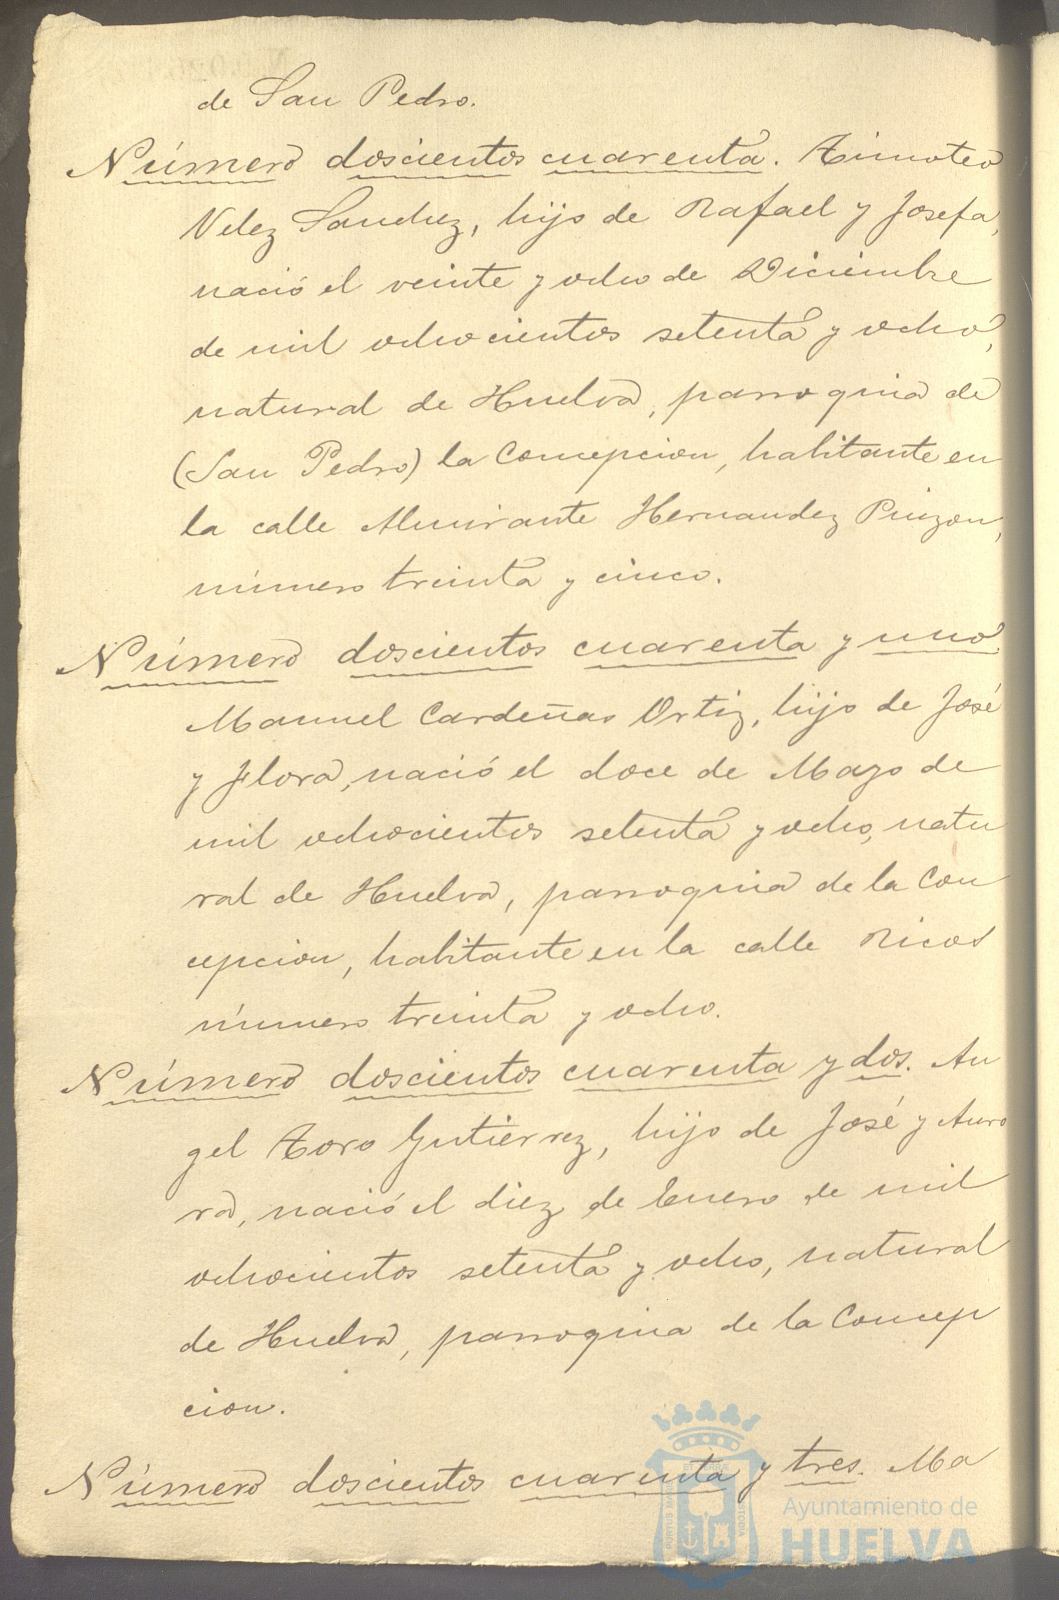 de San Pedro.
Número doscientos cuarenta. Timoteo
Velez Sanchez, hijo de Rafael y Josefa,
nació el veinte y ocho de Diciembre
de mil ochocientos setenta y ocho,
natural de Huelva, parroquia de
(San Pedro) la Concepcion, habitante en
la calle Almirante Hernandez Pinzon,
número treinta y cinco.
Número doscientos cuarenta y uno
Manuel Cardeñas Ortiz, hijo de José
y Flora, nació el doce de Mayo de
mil ochocientos setenta y ocho, natu
ral de Huelva, parroquia de la Con
cepcion, habitante en la calle Ricos
número treinta y ocho.
Número doscientos cuarenta y dos. An
gel Toro Gutierrez, hijo de José y Auro
ra, nació el diez de Enero de mil
ochocientos setenta y ocho, natural
de Huelva, parroquia de la Concep
cion.
Número doscientos cuarenta y tres. Ma
Ayuntamiento de
HUELVA